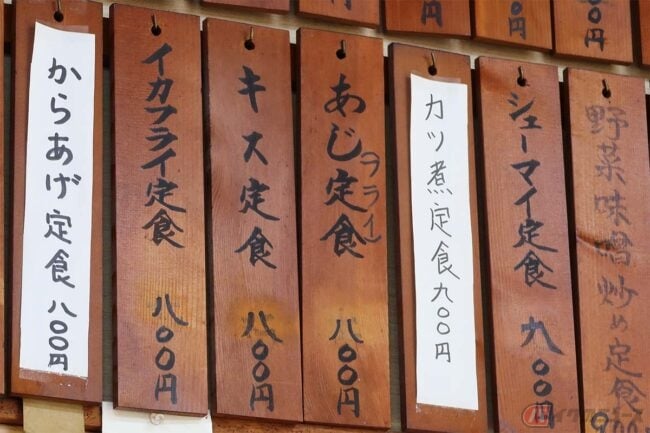 からあげ定食 八〇〇円
イカフライ定食 八〇〇円
キス定食 八〇〇円
あじ(フライ)定食 八〇〇円
カツ煮定食 九〇〇円
シューマイ定食 九〇〇円
野菜味噌炒め定食
円
円
〇〇円
〇〇円